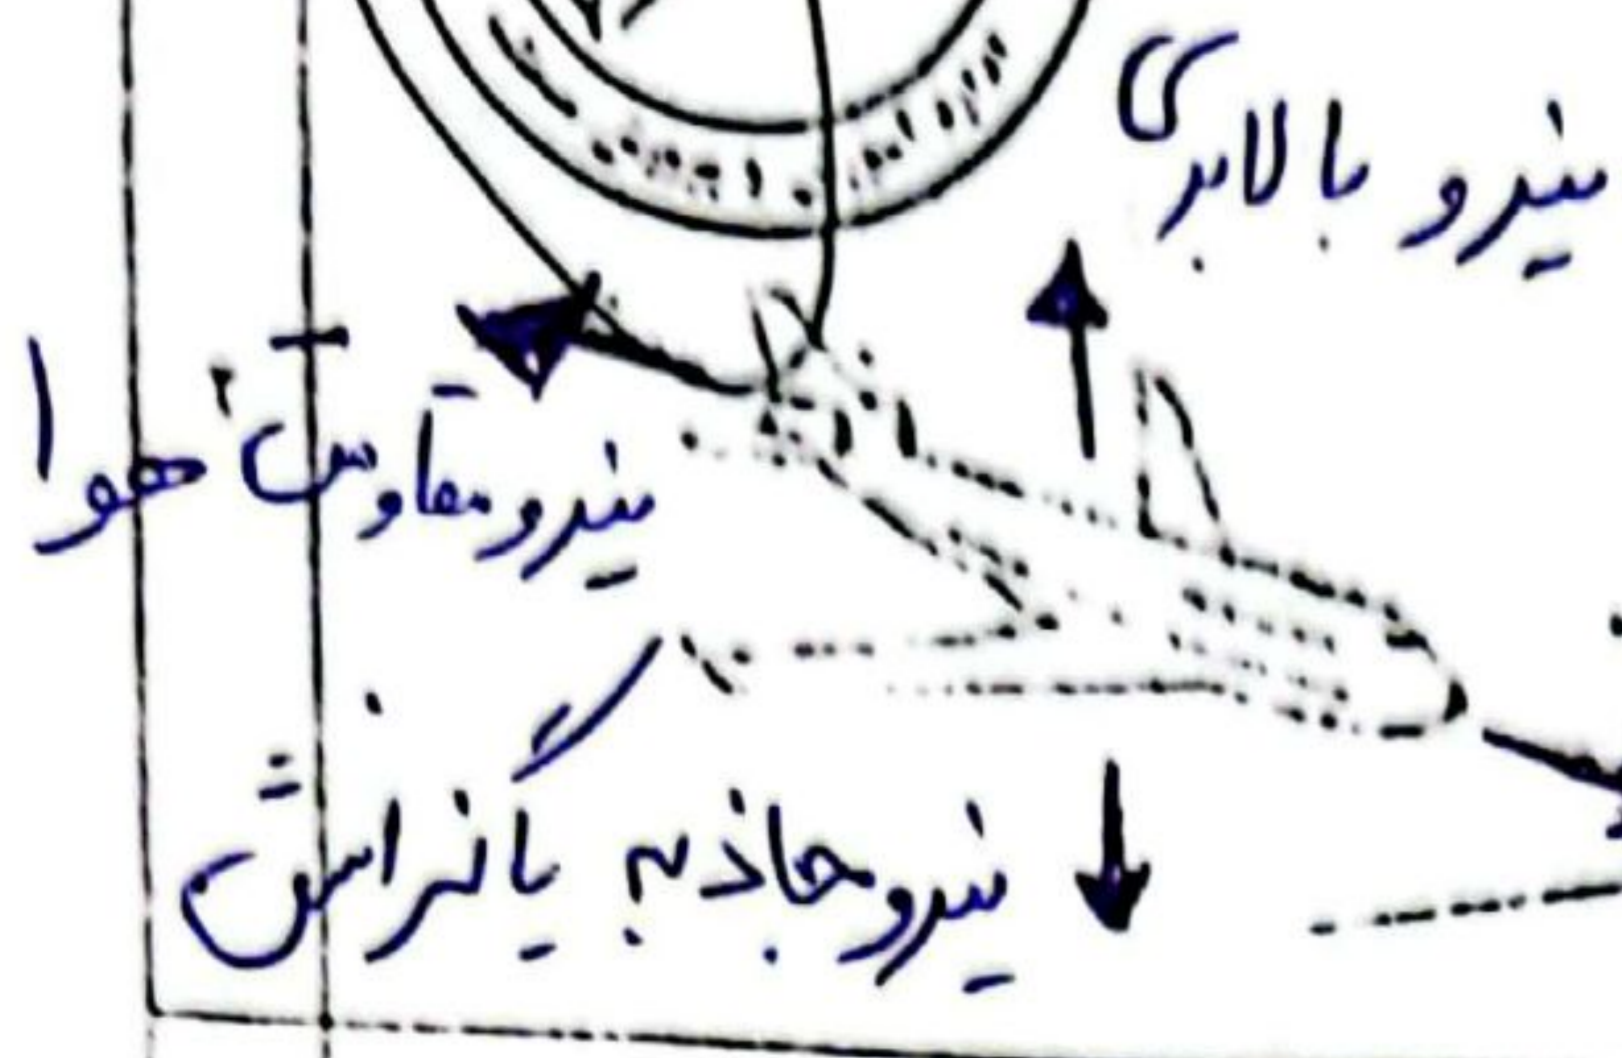 نیرو بالابری
نیرو مقاومت هوا
نیرو جاذبه یا گرانش